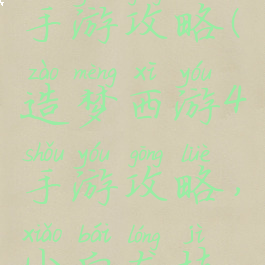 手游攻略(
zào mèng xī yóu
造梦西游4
shǒu yóu gōng lüè
手游攻略,